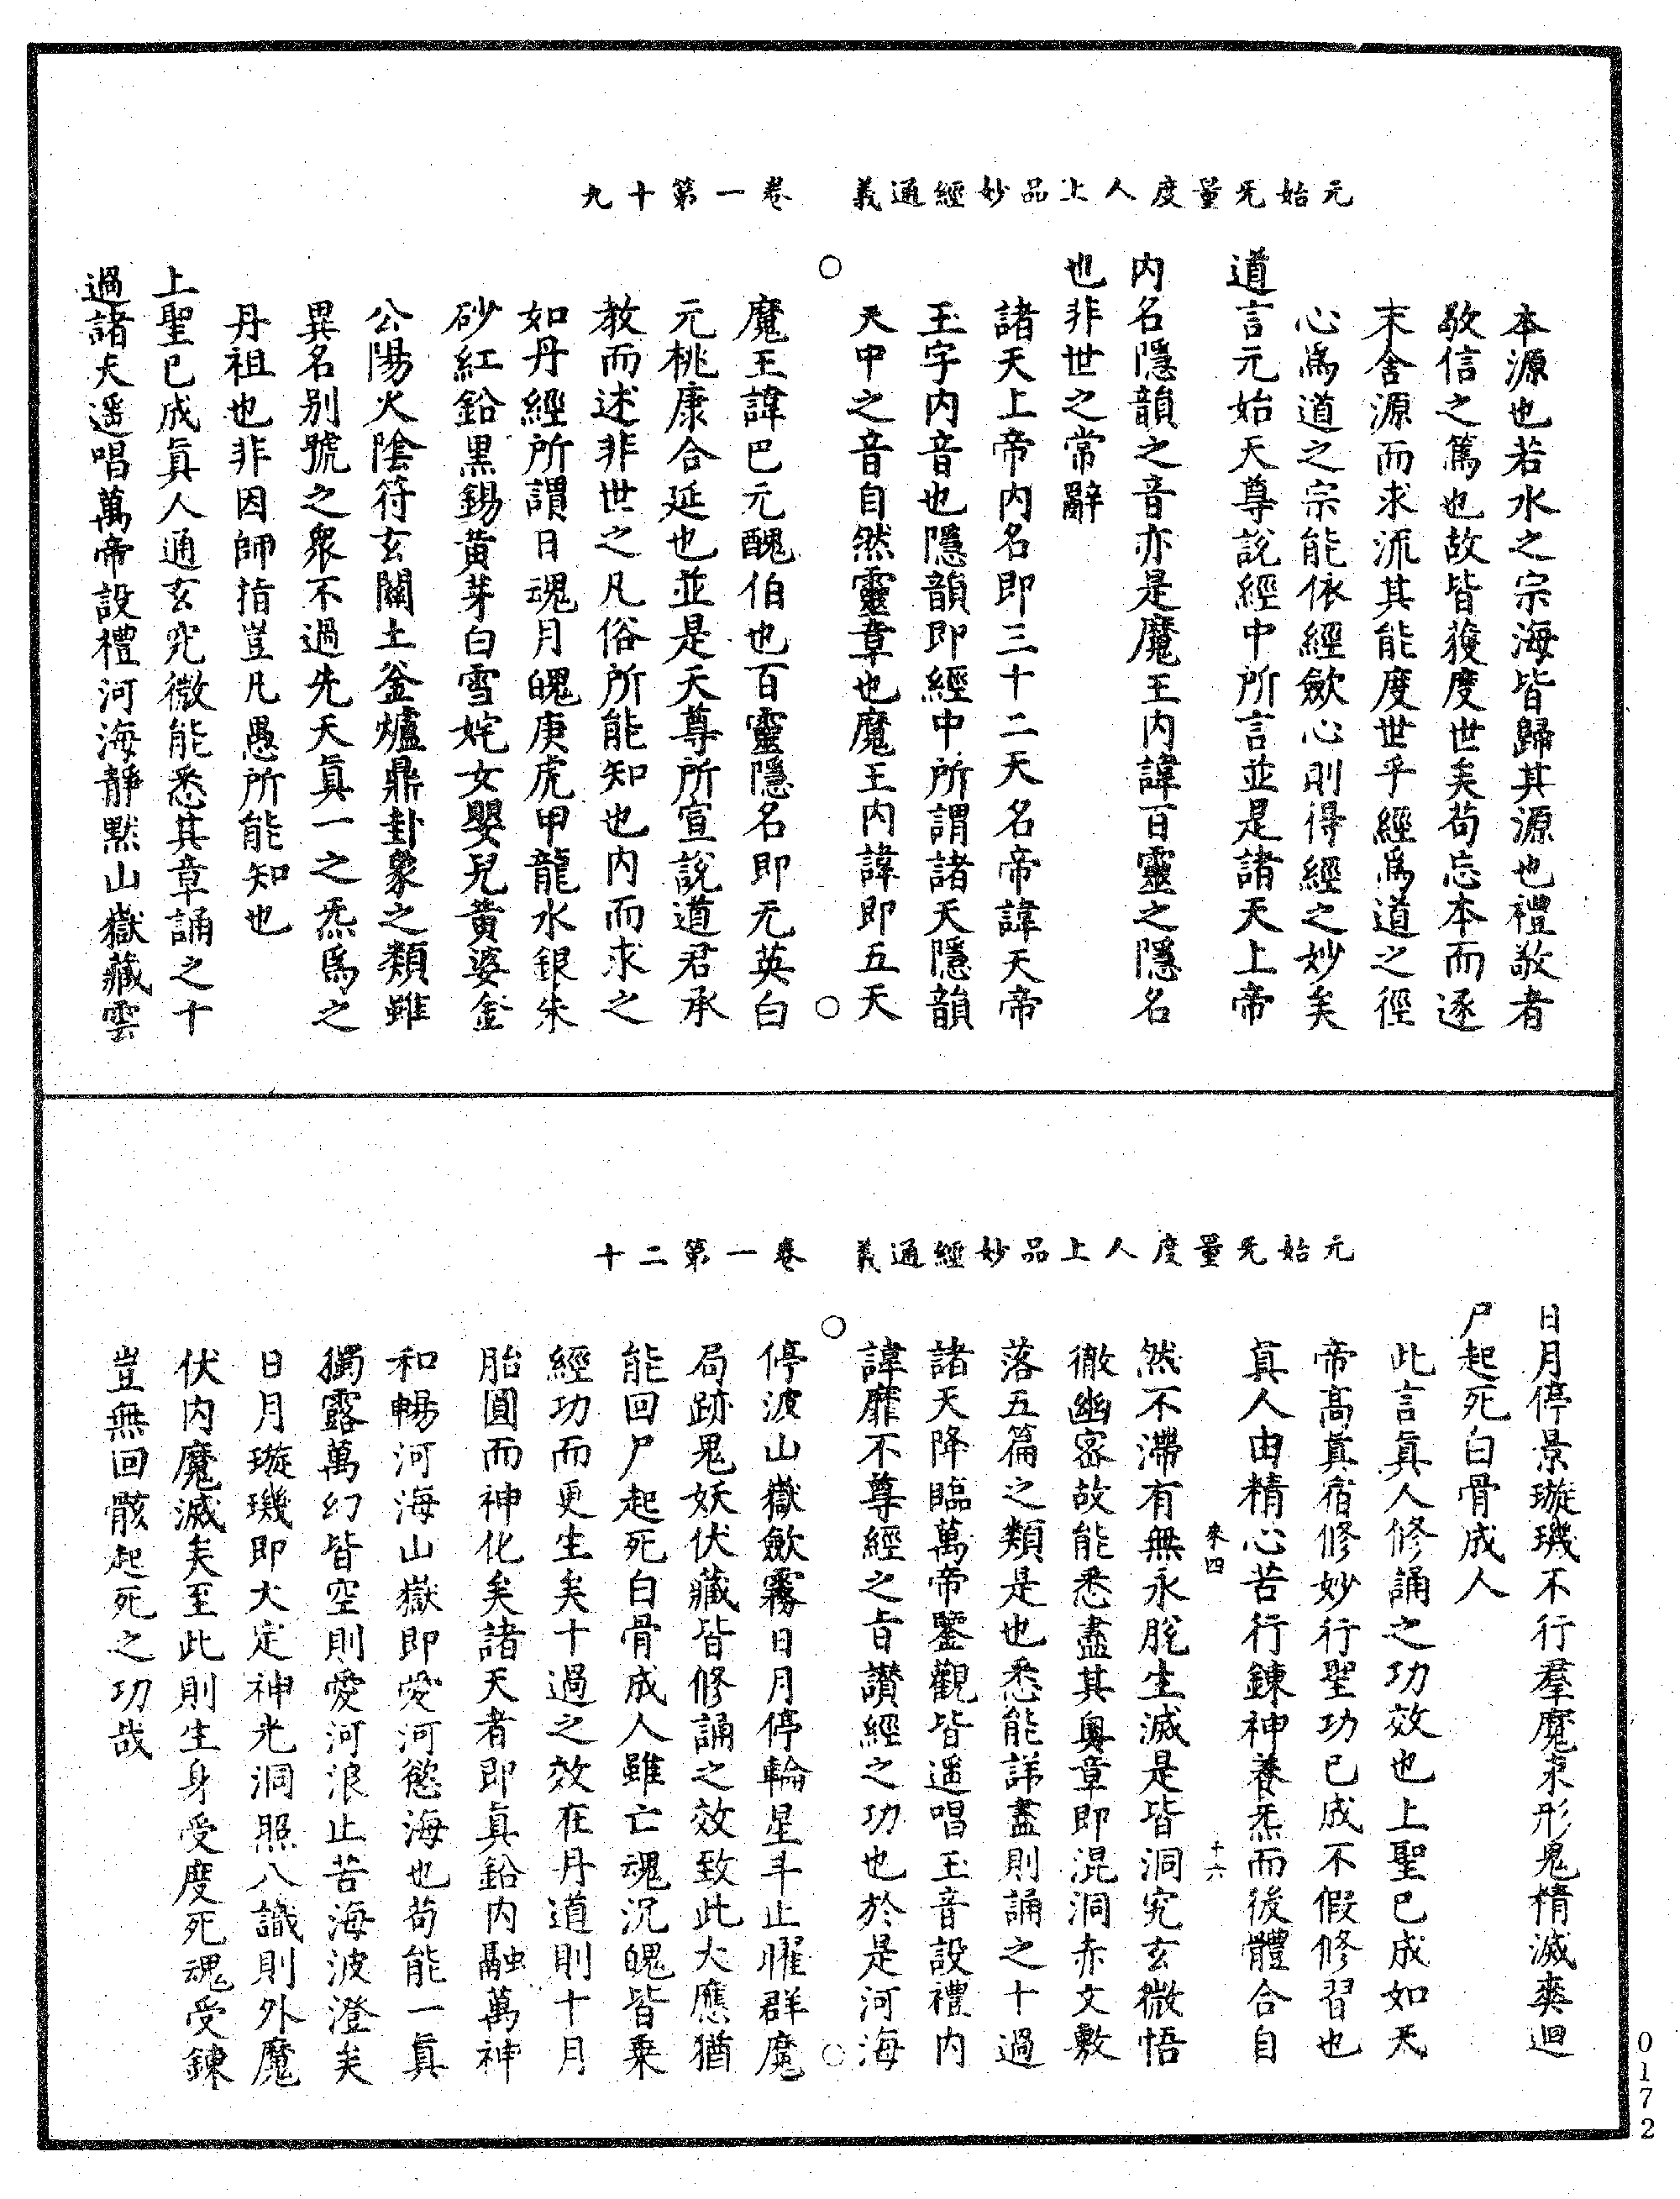 元始无量度人上品妙經通義　卷一第十九
本源也若水之宗海皆歸其源也禮敬者
敬信之篤也故皆獲度世矣苟忘本而逐
末舍源而求流其能度世乎經爲道之徑
心爲道之宗能依經歛心則得經之妙矣
道言元始天尊說經中所言並是諸天上帝
内名隱韻之音亦是魔王内諱百靈之隱名
也非世之常辭
諸天上帝内名即三十二天名帝諱天帝
玉字内音也隱韻即經中所謂諸天隱韻
天中之音自然靈章也魔王内諱即五天
魔王諱巴元醜伯也百靈隱名即无英白
元桃康合延也並是天尊所宣說道君承
教而述非世之凡俗所能知也内而求之
如丹經所謂日魂月魄庚虎甲龍水銀朱
砂紅鉛黒錫黄芽白雪姹女嬰兒黄婆金
公陽火陰符玄關土釜爐鼎卦象之類雖
異名别號之衆不過先天眞一之炁爲之
丹祖也非因師指豈凡愚所能知也
上聖已成眞人通玄究微能悉其章誦之十
過諸天遥唱萬帝設禮河海靜黙山嶽藏雲
元始无量度人上品妙經通義　卷一第二十
日月停景璇璣不行羣魔束形鬼精滅爽迴
尸起死白骨成人
此言眞人修誦之功效也上聖已成如天
帝高眞宿修妙行聖功已成不假修習也
眞人由精心苦行錬神養炁而後體合自
來四　十六
然不滯有無永脫生滅是皆洞究玄微悟
徹幽宻故能悉盡其奥章即混洞赤文敷
落五篇之類是也悉能詳盡則誦之十過
諸天降臨萬帝鑒觀皆遥唱玉音設禮内
諱靡不尊經之旨讃經之功也於是河海
停波山嶽歛霧日月停輪星斗止耀群魔
局跡鬼妖伏藏皆修誦之效致此大應猶
能回尸起死白骨成人雖亡魂沉魄皆乗
經功而更生矣十過之效在丹道則十月
胎圓而神化矣諸天者即眞鉛内融萬神
和暢河海山嶽即愛河慾海也苟能一眞
獨露萬幻皆空則愛河浪止苦海波澄矣
日月璇璣即大定神光洞照八識則外魔
伏内魔滅矣至此則生身受度死魂受錬
豈無回骸起死之功哉
0172